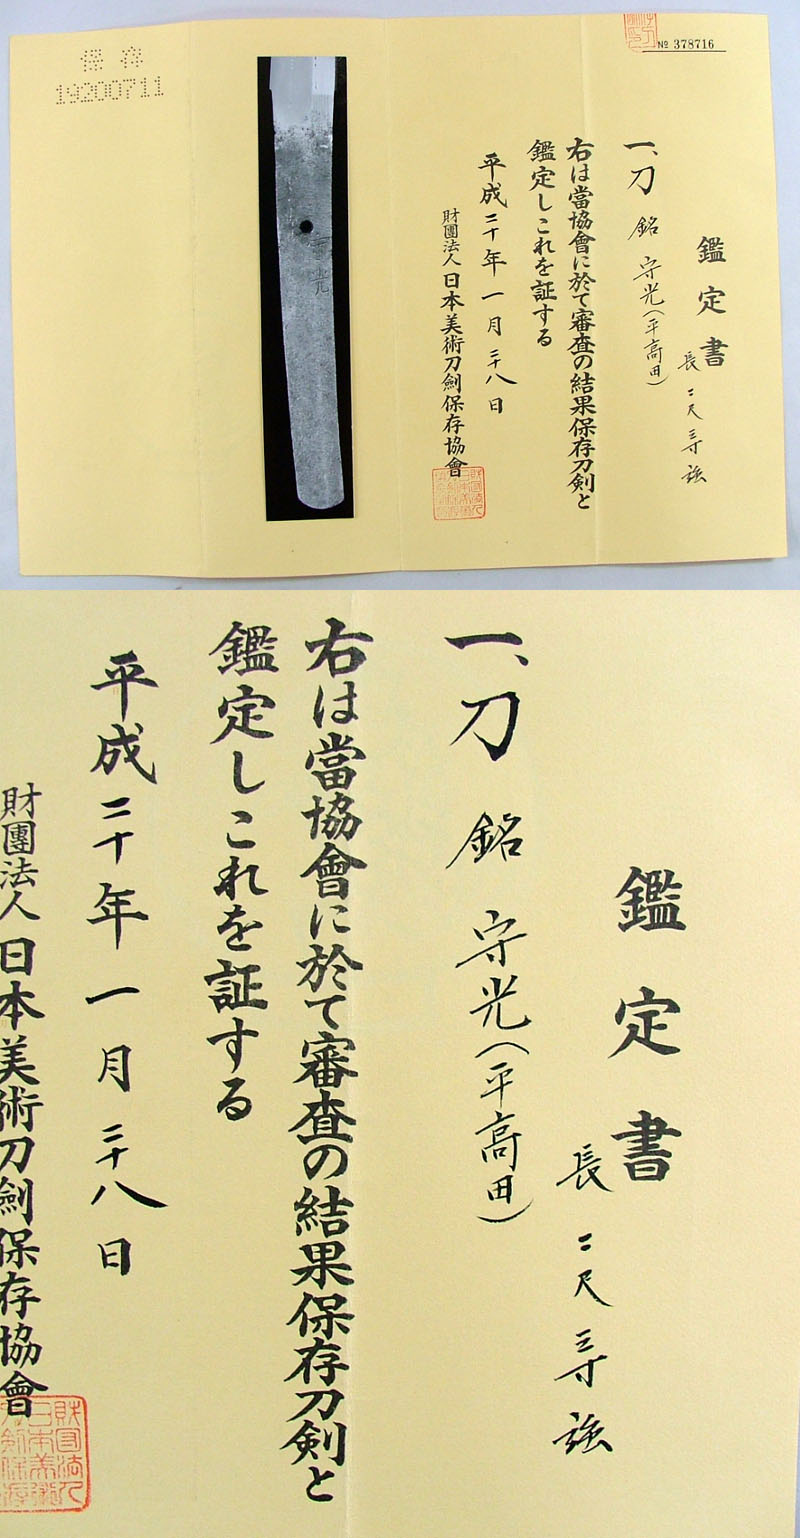 № 378716
鑑定書
長二尺三寸強
一、刀 銘 守光(平高田)
右は當協會に於て審査の結果保存刀剣と
鑑定しこれを証する
平成二十年一月二十八日
財團法人日本美術刀劍保存協會
保存
19200711
守光
鑑定書
長二尺三寸強
一、刀 銘 守光(平高田)
右は當協會に於て審査の結果保存刀剣と
鑑定しこれを証する
平成二十年一月二十八日
財團法人日本美術刀劍保存協會